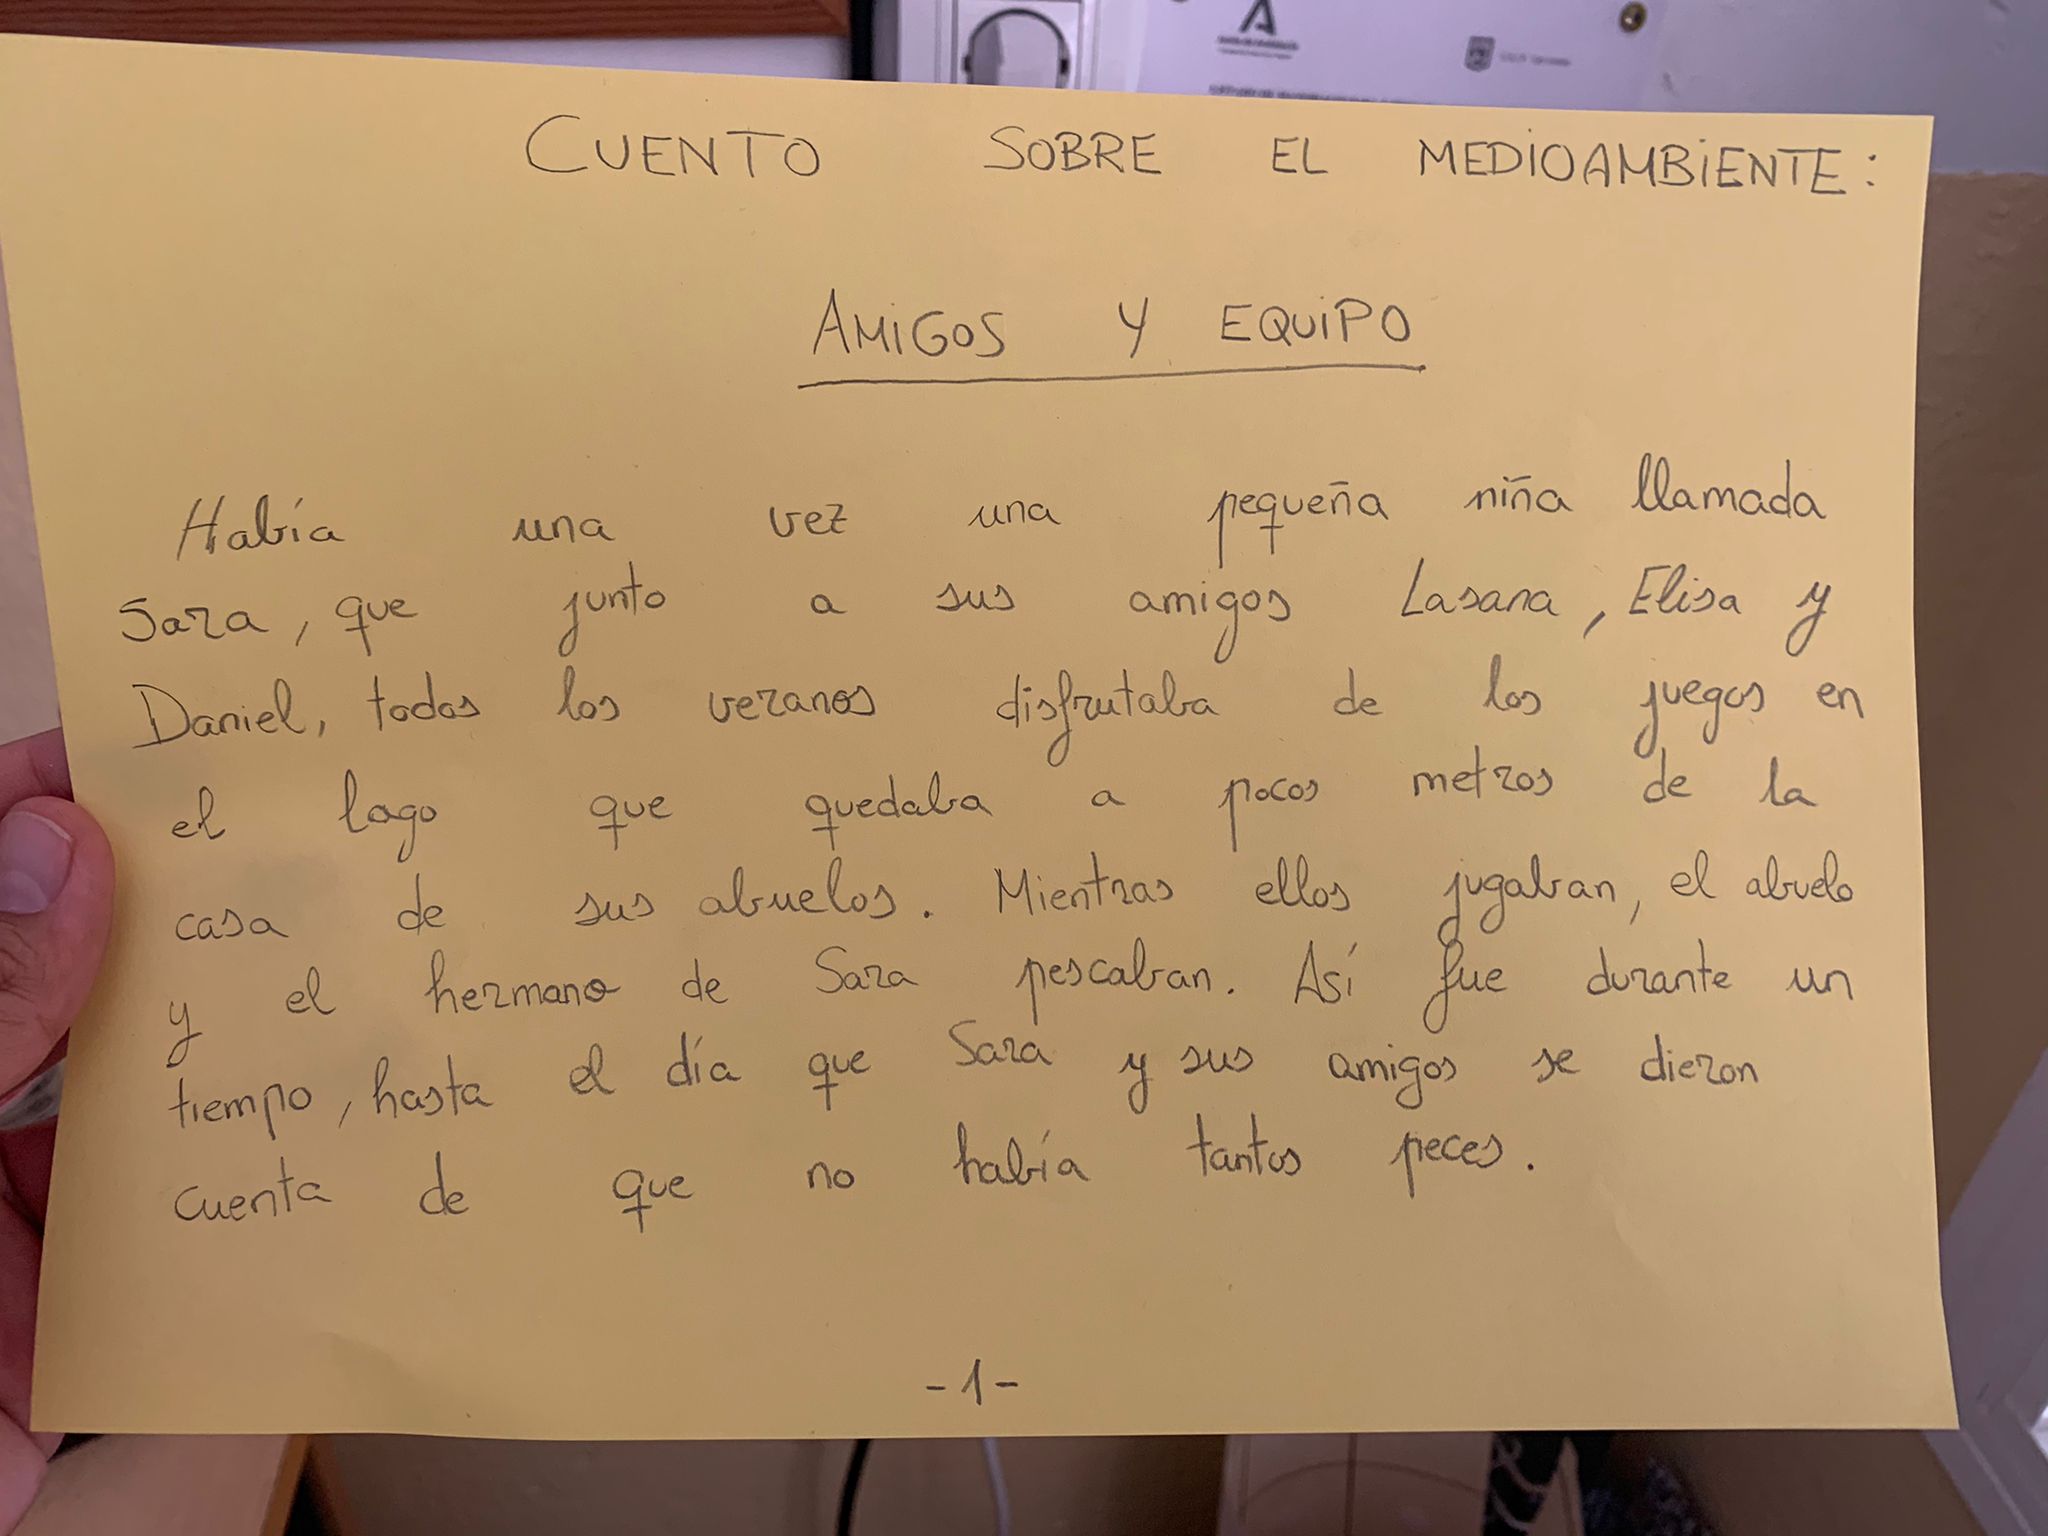 CUENTO SOBRE EL MEDIOAMBIENTE:
AMIGOS Y EQUIPO
Había una vez una pequeña niña llamada
Sara, que junto a sus amigos Lasana, Elisa y
Daniel, todos los veranos disfrutaba de los juegos en
el lago que quedaba a pocos metros de la
casa de sus abuelos. Mientras ellos jugaban, el abuelo
y el hermano de Sara pescaban. Así fue durante un
tiempo, hasta el día que Sara y sus amigos se dieron
cuenta de que no había tantos peces.
-1-